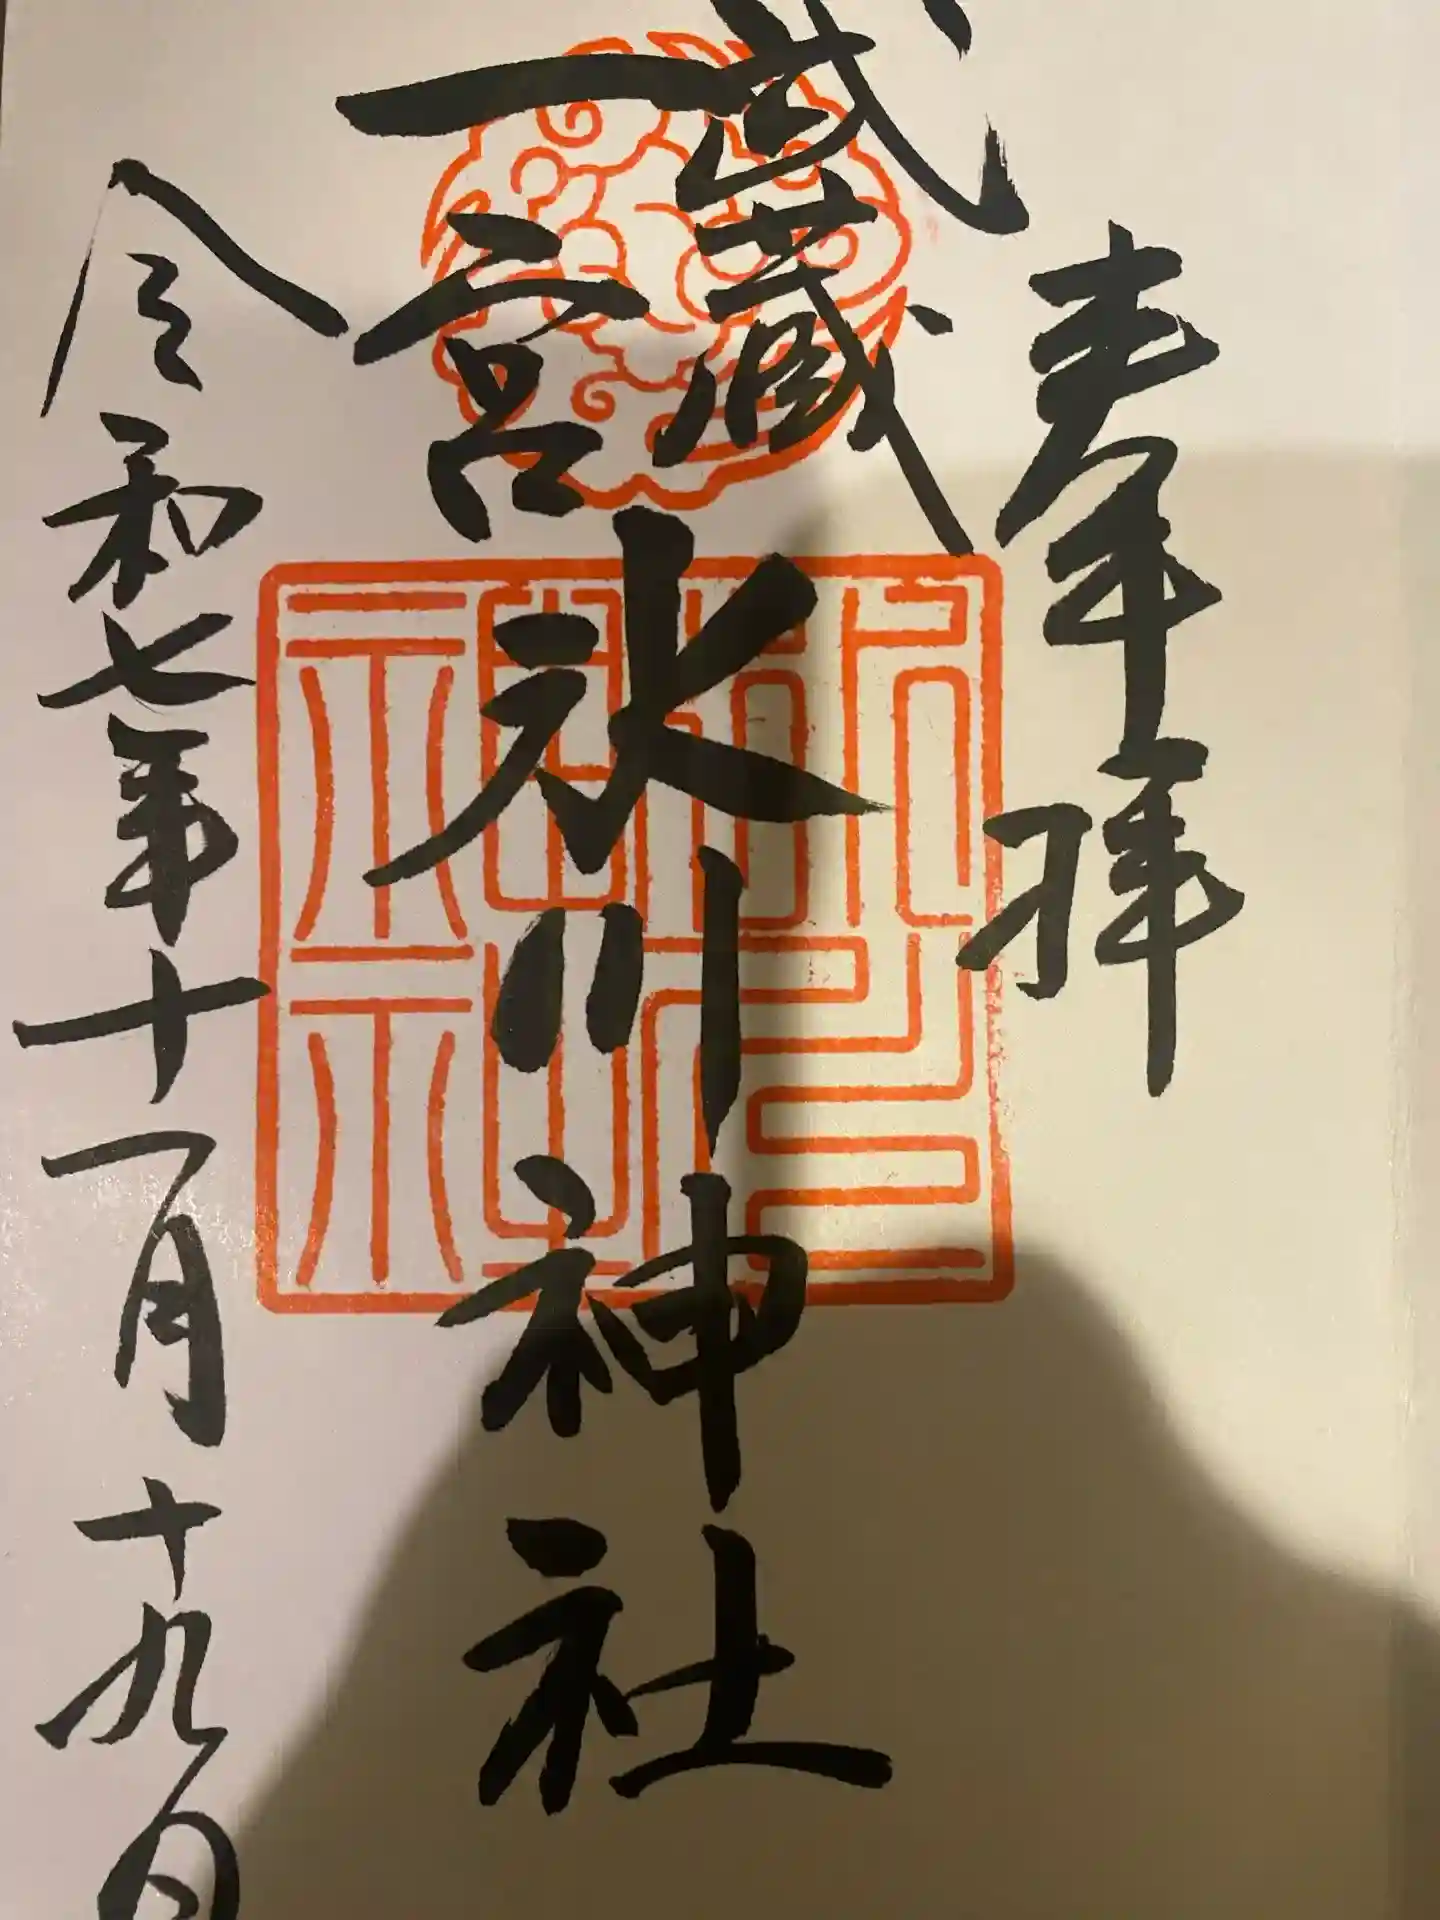 奉拝
武蔵
一宮
氷川神社
令和七年十一月十九日